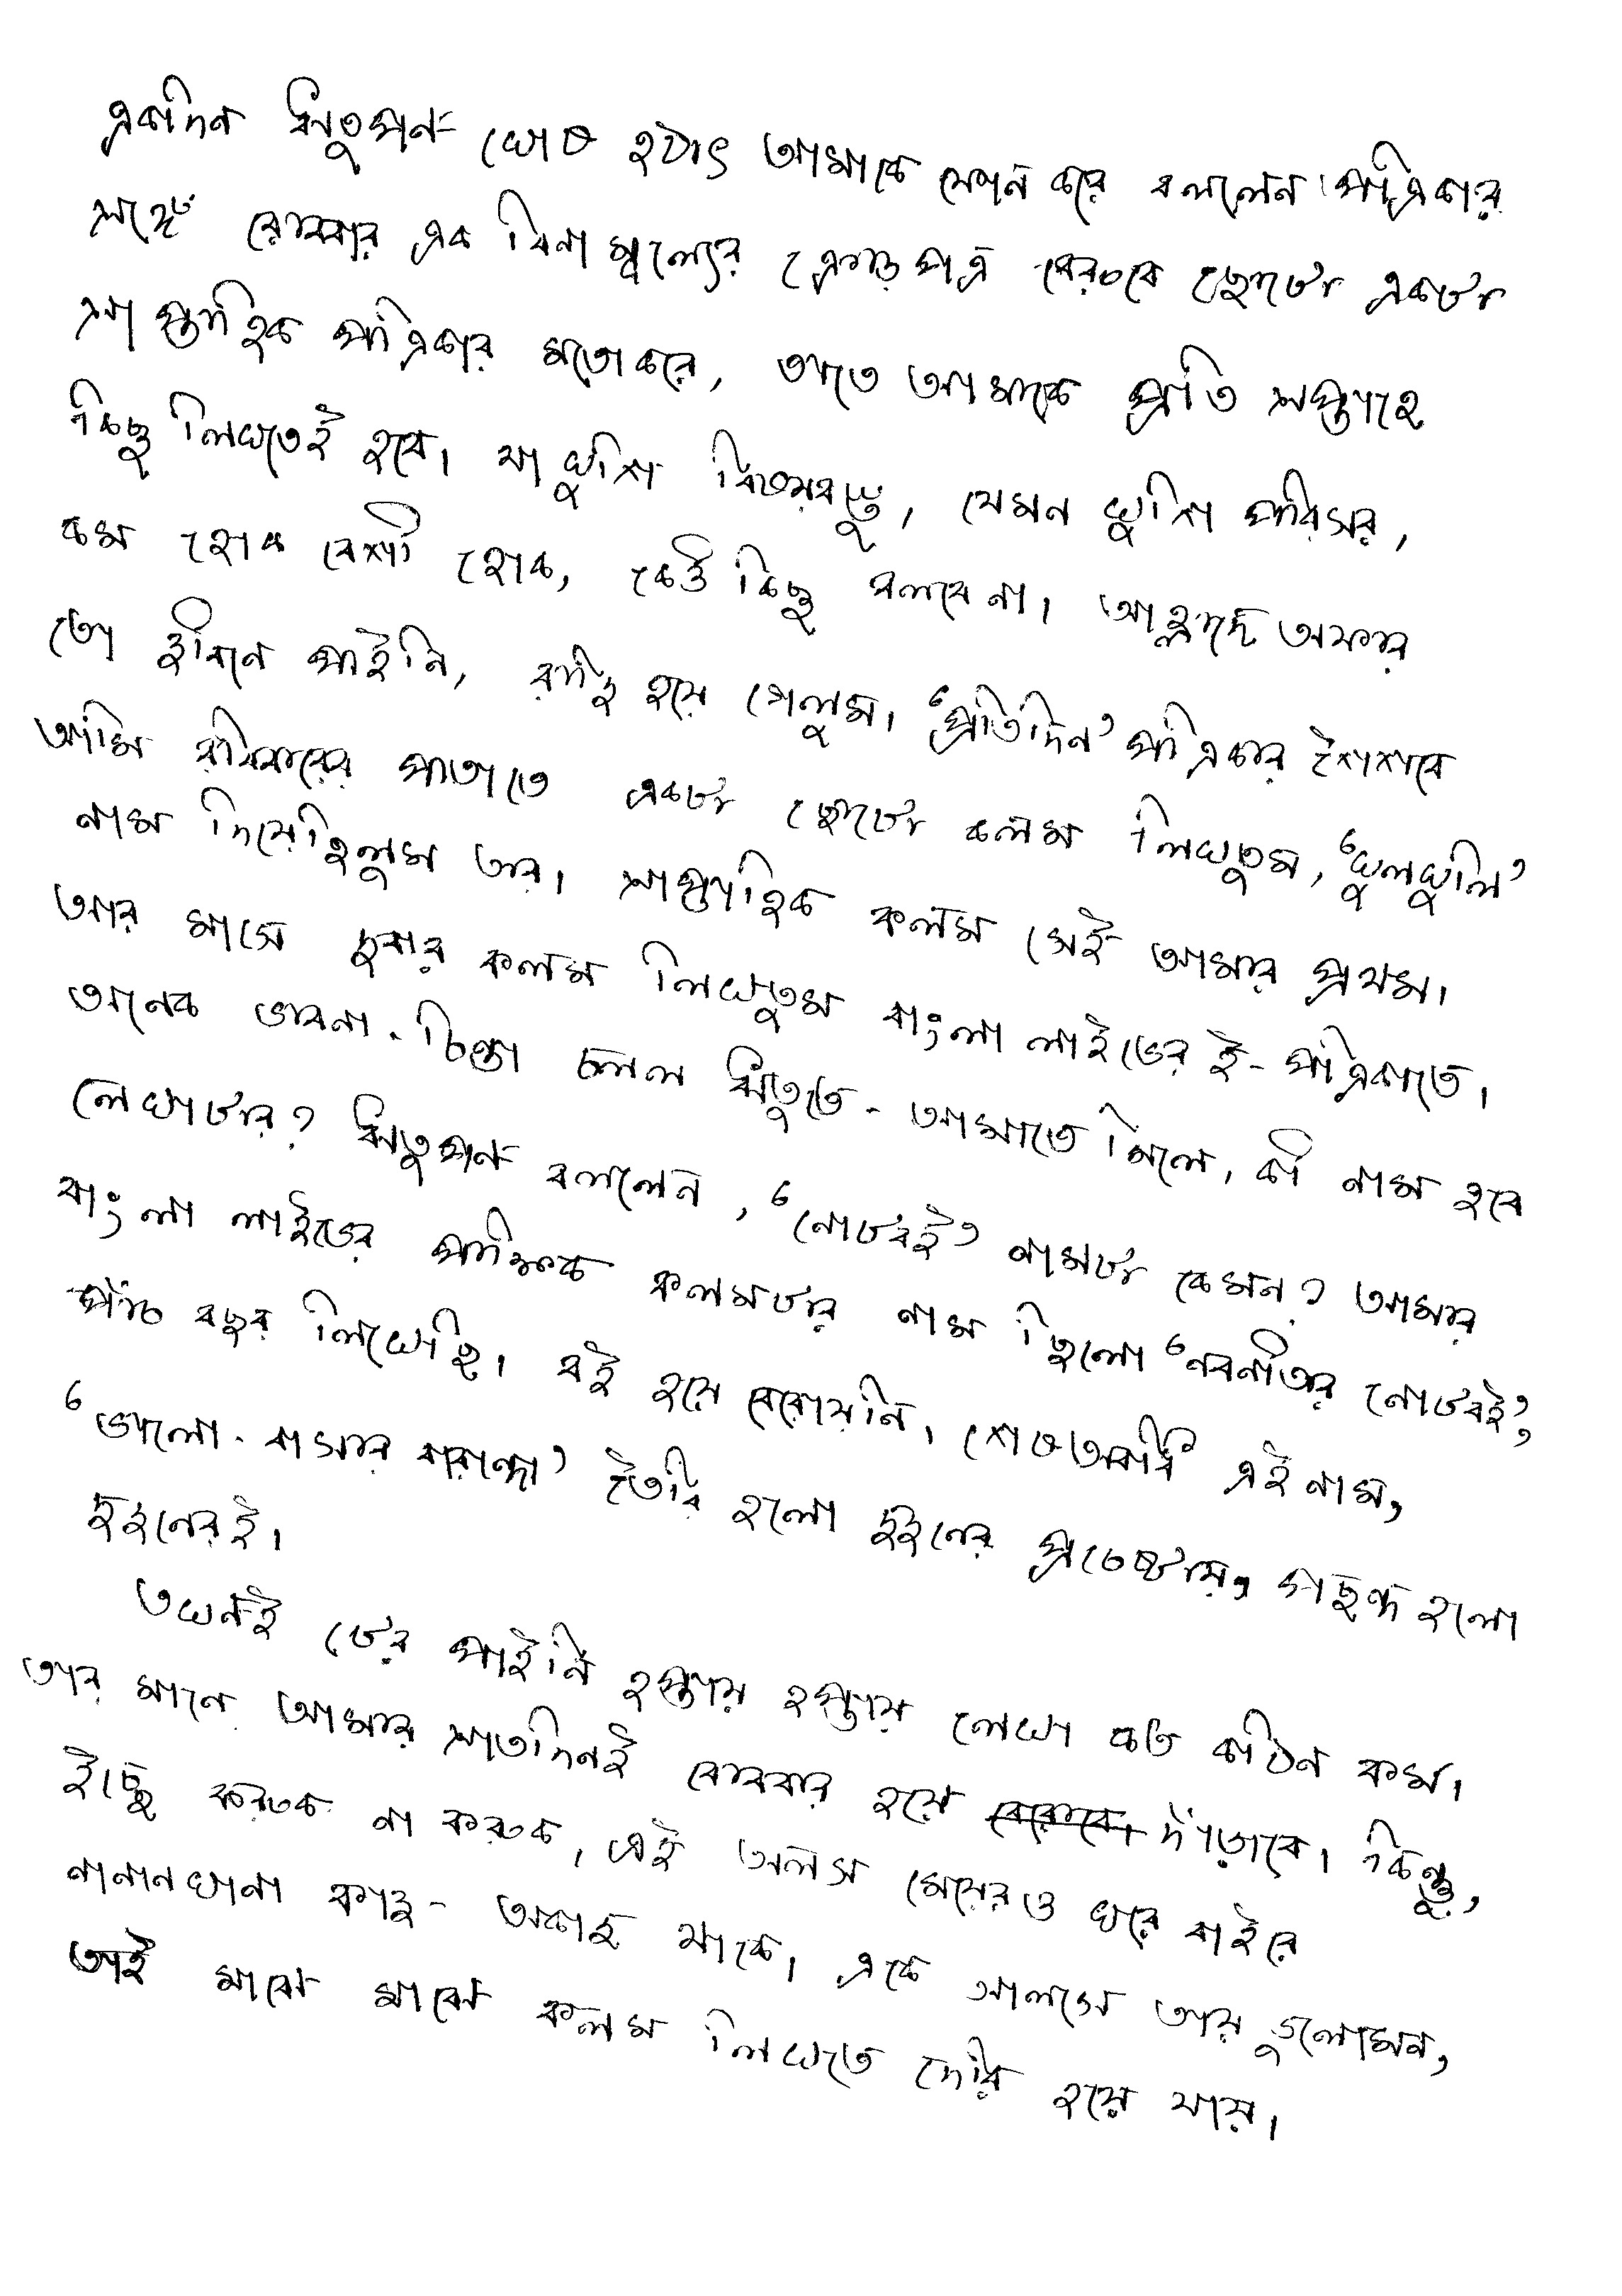 একদিন ঋতুপর্ণ ঘোষ হঠাৎ আমাকে ফোন করে বললেন পত্রিকার
সঙ্গে রোববার এক বিনামূল্যের ক্রোড়পত্র বেরুবে ছোটো একটা
সাপ্তাহিক পত্রিকার মতো করে, তাতে আমাকে প্রতি সপ্তাহে
কিছু লিখতেই হবে। যা খুশি বিষয়বস্তু, যেমন খুশি পরিসর,
কম হোক বেশী হোক, কেউ কিছু বলবে না। আহ্লাদে অফার
তো জীবনে পাইনি, রাজি হয়ে গেলুম। ‘প্রতিদিন’ পত্রিকার শৈশবে
আমি রবিবারের পাতাতে একটা ছোটো কলম লিখতুম, ‘ঘুলঘুলি’
নাম দিয়েছিলুম তার। সাপ্তাহিক কলম সেই আমার প্রথম।
আর মাসে দুবার কলম লিখতুম বাংলা লাইভের ই-পত্রিকাতে।
অনেক ভাবনা-চিন্তা চলল ঋতুতে-আমাতে মিলে, কী নাম হবে
লেখাটার? ঋতুপর্ণ বললেন, ‘নোটবই’ নামটা কেমন? আমার
বাংলা লাইভের পাক্ষিক কলমটার নাম ছিলো ‘নবনীতার নোটবই’,
পাঁচ বছর লিখেছি। বই হয়ে বেরোয়নি। শেষঅবধি এই নাম,
‘ভালো-বাসার বারান্দা’ তৈরি হলো দুজনের প্রচেষ্টায়, পছন্দ হলো
দুজনেরই।
তখনই টের পাইনি হপ্তায় হপ্তায় লেখা কত কঠিন কর্ম।
তার মানে আমার সাতদিনই রোববার হয়ে বেরোবে। দাঁড়াবে। কিন্তু,
ইচ্ছে করুক না করুক, এই অলস মেয়েরও ঘরে বাইরে
নানানখানা কাজ-অকাজ থাকে। একে আলসে তায় ভুলোমন,
তাই মাঝে মাঝে কলম লিখতে দেরি হয়ে যায়।